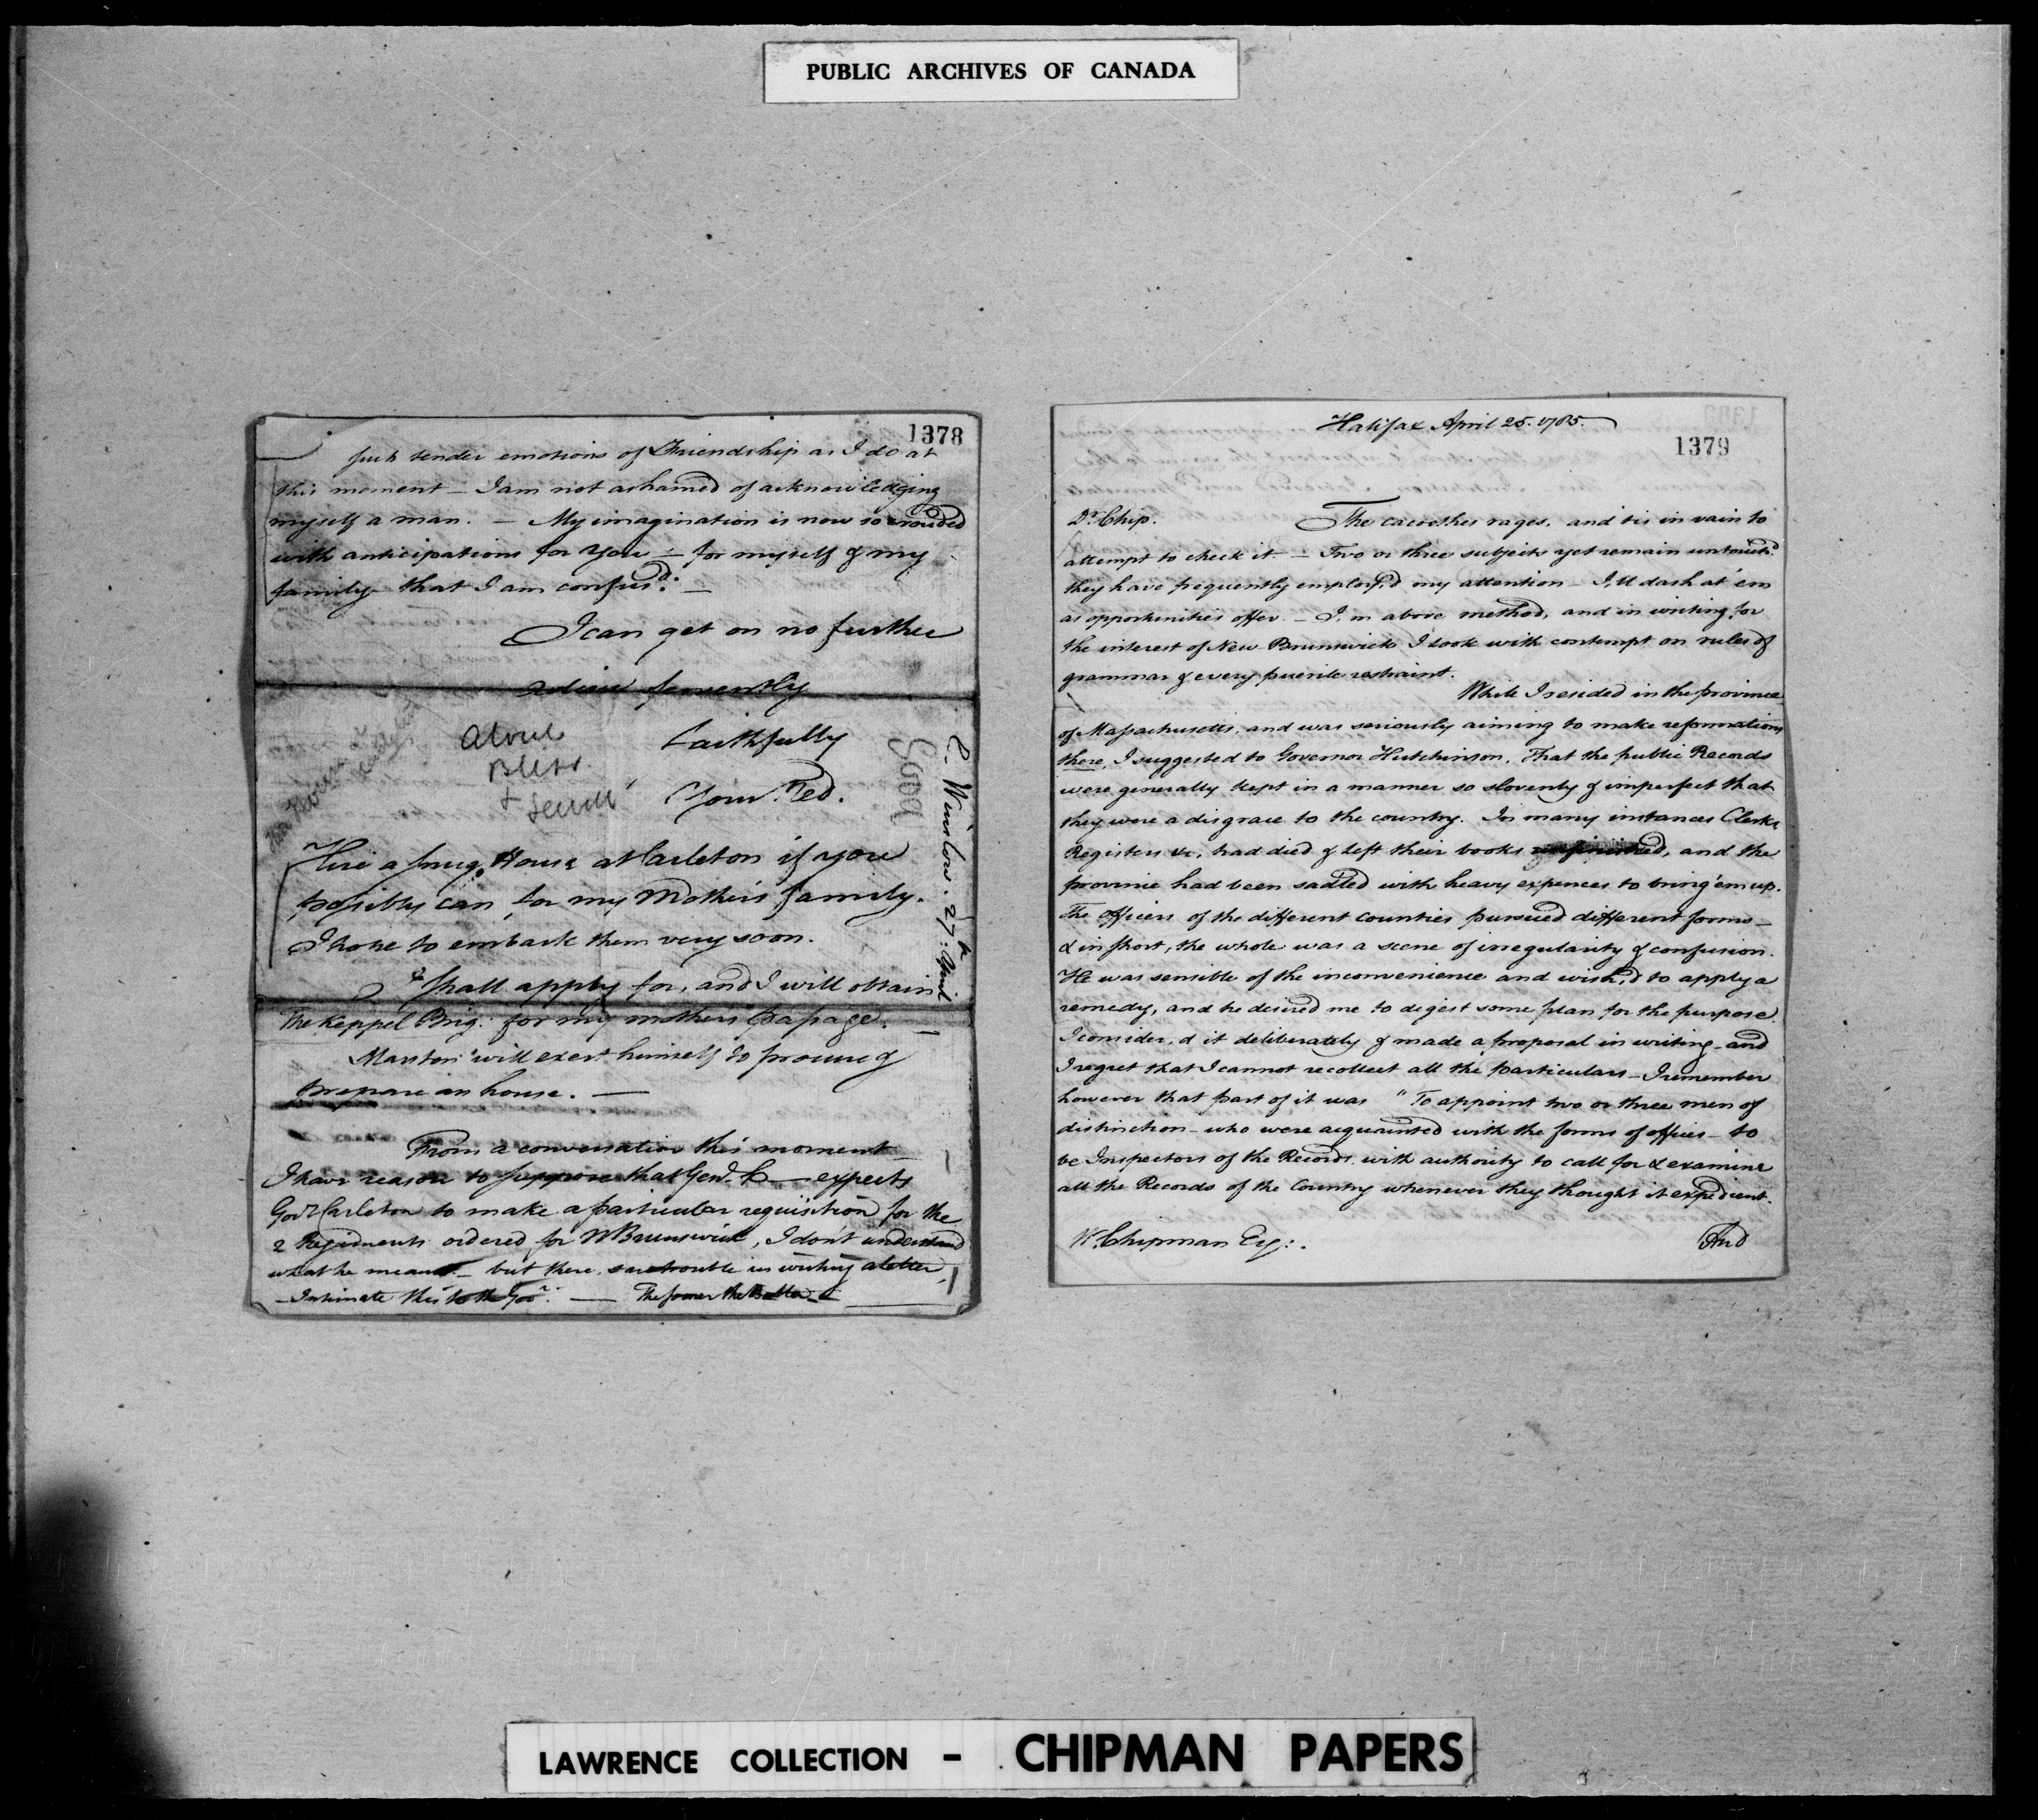 PUBLIC ARCHIVES OF CANADA
1378
such tender emotions of Friendship as I do at
this moment – I am not ashamed of acknowledging
myself a man. – My imagination is now so crouded
with anticipations for You – for myself & my
family that I am confus'd. –
I can get on no further
adieu fervently
Faithfully
Your Ned.
About
Bliss
+ Sewell
E. Winslow. 27th April
Hire a snug House at Carleton if you
possibly can for my Mother's family.
I hope to embark them very soon.
I shall apply for, and I will obtain
the Keppel Brig: for my mother's passage. –
Marston will exert himself to procure &
prepare an house. –
From a conversation this moment
I have reason to suppose that Genl. C— expects
Govr Carleton to make a particular requisition for the
2 Regiments ordered for N Brunswick, I don't understand
what he means – but there's no trouble in writing a letter,
– Intimate this to the Govr. — The sooner the better –
Halifax April 25. 1785.
1379
Dr. Chip.
The cacoethes rages, and tis in vain to
attempt to check it – Two or three subjects yet remain untouch'd
they have frequently employ'd my attention – I'll dash at 'em
as opportunities offer – I'm above method, and in writing for
the interest of New-Brunswick I look with contempt on rules of
grammar & every puerile restraint.
While I resided in the province
of Massachusetts, and was seriously aiming to make reformations
there, I suggested to Governor Hutchinson, That the public Records
were generally kept in a manner so slovenly & imperfect that
they were a disgrace to the country. In many instances Clerks,
Registers &c, had died & left their books unfinished, and the
province had been sadled with heavy expences to bring 'em up.
The officers of the different counties pursued different forms –
& in short, the whole was a scene of irregularity & confusion.
He was sensible of the inconvenience and wish'd to apply a
remedy, and he desired me to digest some plan for the purpose.
I consider'd it deliberately & made a proposal in writing – and
I regret that I cannot recollect all the particulars – I remember
however that part of it was "To appoint two or three men of
distinction – who were acquainted with the forms of offices – to
be Inspectors of the Records with authority to call for & examine
all the Records of the Country whenever they thought it expedient.
W. Chipman Esq:.
And
LAWRENCE COLLECTION - CHIPMAN PAPERS